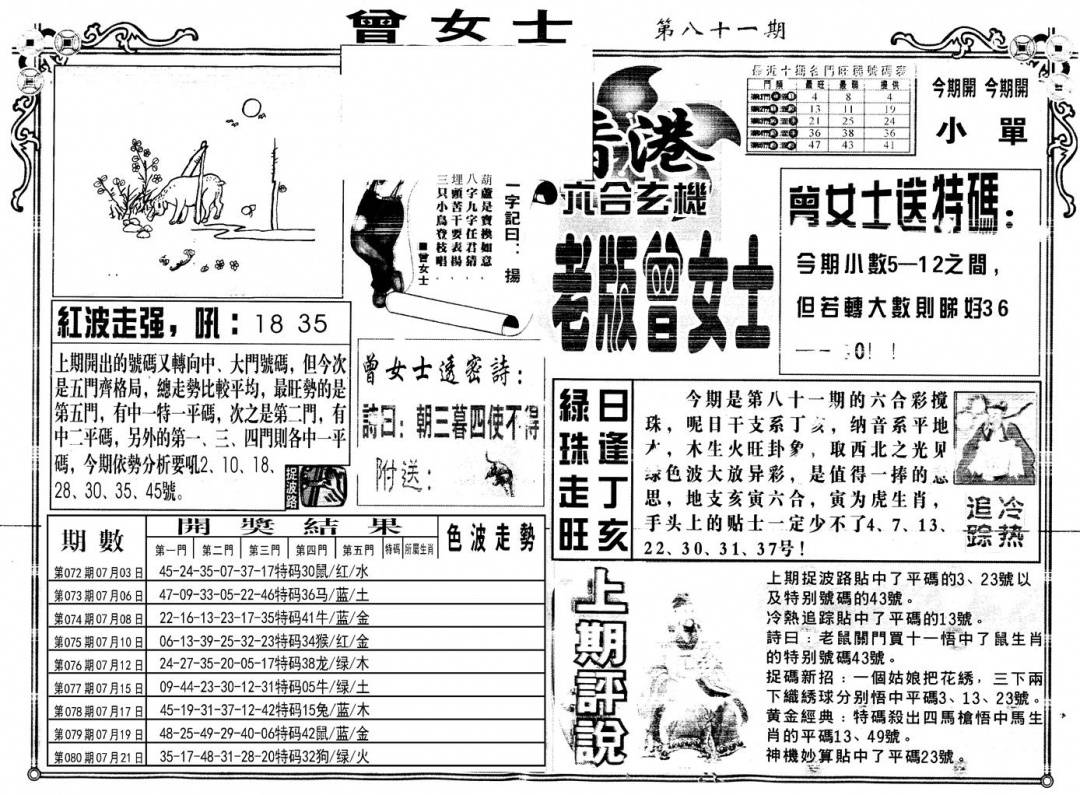 曾女士
第八十一期
一字記曰：揚
葫蘆是寶換如意
八字九字任君猜
埋頭苦干要表揚
三只小鳥登枝唱
■曾女士
港
六合玄機
老版曾女士
4 8 4
13 11 19
21 25 24
36 38 36
47 43 41
今期開 今期開
小 單
曾女士送特碼：
今期小數5—12之間，
但若轉大數則睇好36
紅波走强，吼：18 35
上期開出的號碼又轉向中、大門號碼，但今次
是五門齊格局，總走勢比較平均，最旺勢的是
第五門，有中一特一平碼，次之是第二門，有
中二平碼，另外的第一、三、四門則各中一平
碼，今期依勢分析要吼2、10、18、
28、30、35、45號。
捉波路
曾女士透密詩：
詩曰：朝三暮四使不得
附送：
綠珠走旺
日逢丁亥
今期是第八十一期的六合彩攪
珠，呢日干支系丁亥，纳音系平地
木，木生火旺卦象，取西北之光见
绿色波大放异彩，是值得一捧的意
思，地支亥寅六合，寅为虎生肖，
手头上的贴士一定少不了4、7、13、
22、30、31、37号！
冷热
追踪
期數
開獎結果
色波走勢
第一門 第二門 第三門 第四門 第五門 特碼 所屬生肖
第072期07月03日 45-24-35-07-37-17特码30鼠/红/水
第073期07月06日 47-09-33-05-22-46特码36马/蓝/土
第074期07月08日 22-16-13-23-17-35特码41牛/蓝/金
第075期07月10日 06-13-39-25-32-23特码34猴/红/金
第076期07月12日 24-27-35-20-05-17特码38龙/绿/木
第077期07月15日 09-44-23-30-12-31特码05牛/绿/土
第078期07月17日 45-19-31-37-12-42特码15兔/蓝/木
第079期07月19日 48-25-49-29-40-06特码42鼠/蓝/金
第080期07月21日 35-17-48-31-28-20特码32狗/绿/火
上期評說
上期捉波路貼中了平碼的3、23號以
及特别號碼的43號。
冷熱追踪貼中了平碼的13號。
詩曰：老鼠關門買十一悟中了鼠生肖
的特别號碼43號。
捉碼新招：一個姑娘把花綉，三下兩
下織綉球分别悟中平碼3、13、23號。
黄金經典：特碼殺出四馬槍悟中馬生
肖的平碼13、49號。
神機妙算貼中了平碼23號。